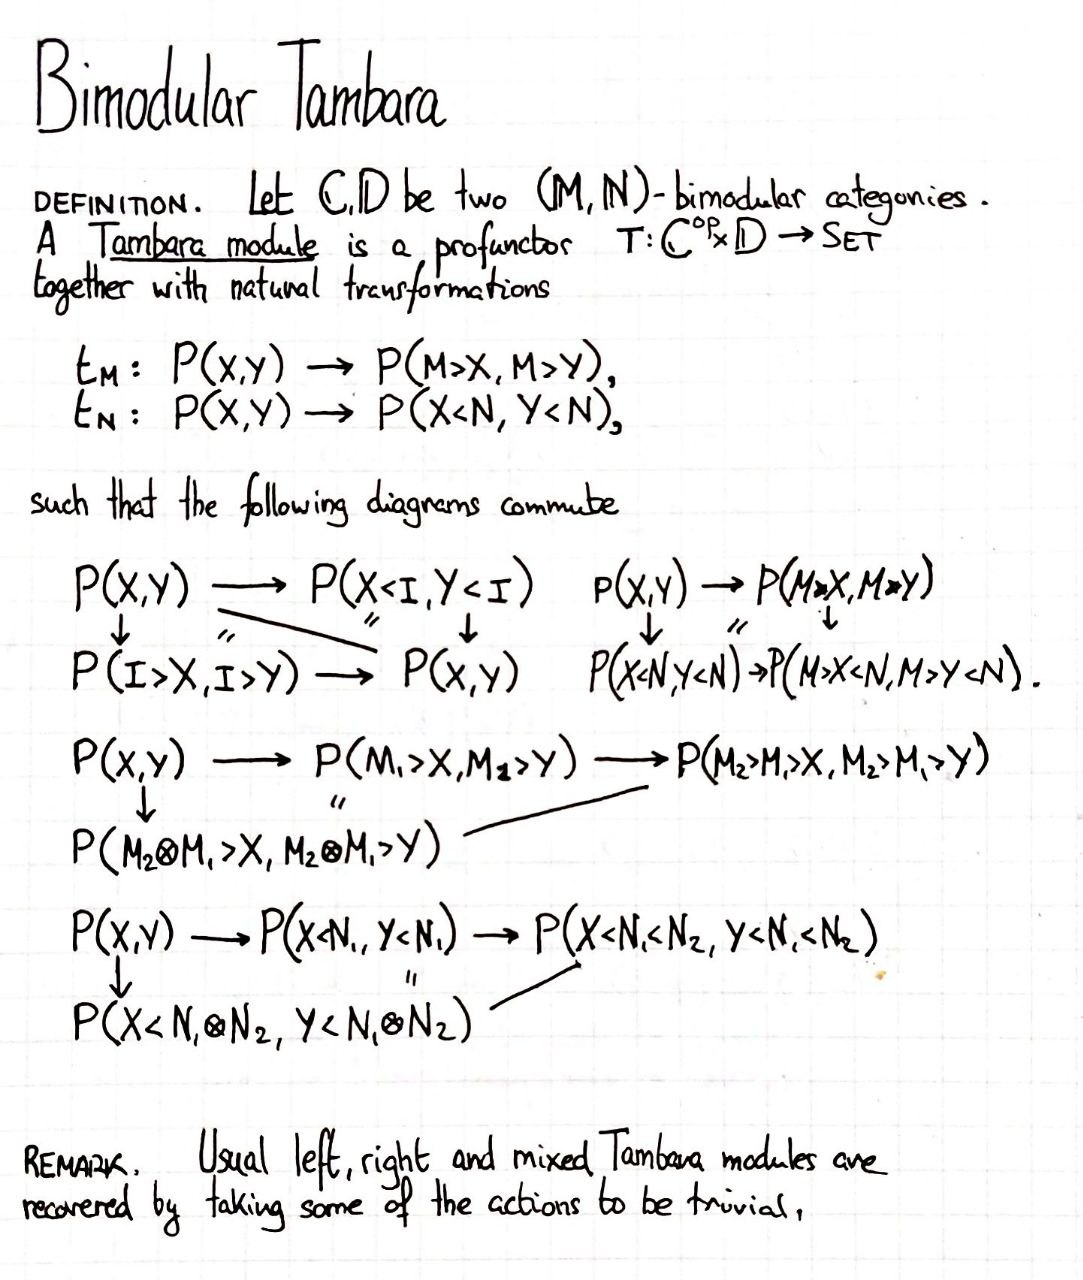 Bimodular Tambara
DEFINITION. Let ℂ,𝔻 be two (𝕄,ℕ)-bimodular categories.
A Tambara module is a profunctor T: ℂᵒᵖ×𝔻 → SET
together with natural transformations
t_M : P(X,Y) → P(M>X, M>Y),
t_N : P(X,Y) → P(X<N, Y<N),
such that the following diagrams commute
P(X,Y) → P(X<I, Y<I) P(X,Y) → P(M>X, M>Y)
↓ " " ↓ ↓ " ↓
P(I>X, I>Y) → P(X,Y) P(X<N, Y<N) → P(M>X<N, M>Y<N).
P(X,Y) → P(M₁>X, M₂>Y) → P(M₂>M₁>X, M₂>M₁>Y)
↓ "
P(M₂⊗M₁>X, M₂⊗M₁>Y)
P(X,Y) → P(X<N₁, Y<N₁) → P(X<N₁<N₂, Y<N₁<N₂)
↓ "
P(X<N₁⊗N₂, Y<N₁⊗N₂)
REMARK. Usual left, right and mixed Tambara modules are
recovered by taking some of the actions to be trivial.